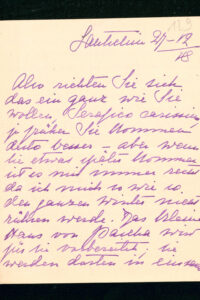 Lautschin 27–12
Also richten Sie sich
das ein ganz wie Sie
wollen, Serafico carissimo
je früher Sie kommen
desto besser – aber wenn
Sie etwas später kommen
ist es mir immer recht
da ich mich so wie so
den ganzen Winter nicht
rühren werde. Das kleine
Haus von
für Sie vorbereitet, Sie
werden dorten in